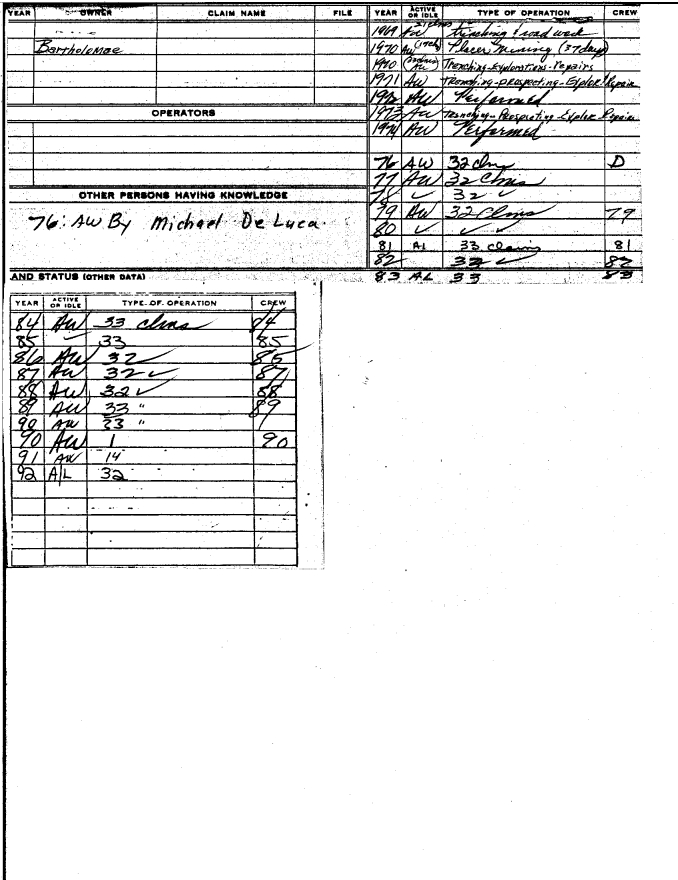 YEAR OWNER CLAIM NAME FILE
Bartholomae
OPERATORS
OTHER PERSONS HAVING KNOWLEDGE
76: AW By Michael De Luca
AND STATUS (OTHER DATA)
YEAR ACTIVE OR IDLE TYPE OF OPERATION CREW
1969 AW trenching & road work
1970 AW Placer Mining (37 days)
1970 AW Trenching-Explorations-repairs
1971 AW Trenching-prospecting-Explor. Repair
1972 AW Performed
1973 AW Trenching-Prospecting Explor. Repair
1974 AW Performed
76 AW 32 clms D
77 AW 32 Clms
78 ✓ 32 ✓
79 AW 32 Clms 79
80 ✓ ✓ ✓
81 AL 33 claims 81
82 ✓ 82
83 AL 33 83
YEAR ACTIVE OR IDLE TYPE OF OPERATION CREW
84 AW 33 clms 84
85 ✓ 33 85
86 AW 32 ✓ 86
87 AW 32 ✓ 87
88 AW 32 ✓ 88
89 AW 33 " 89
90 AW 33 "
90 AW 1 90
91 AW 14
92 AL 32